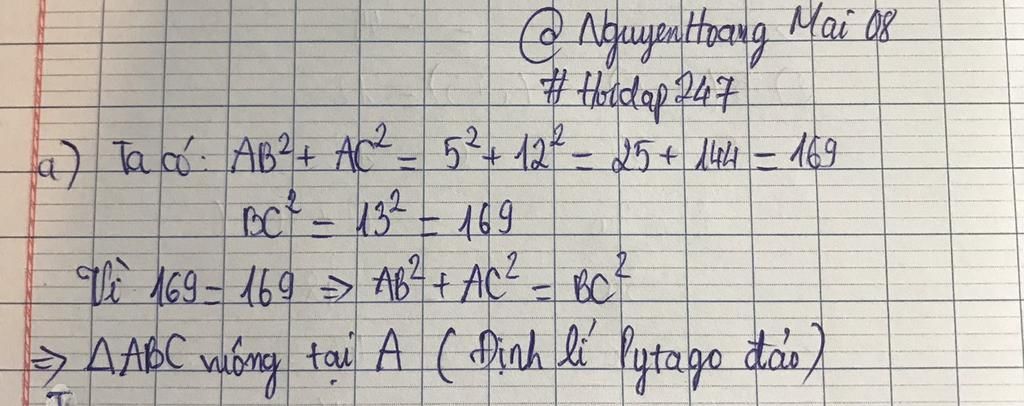 @ NguyenHoang Mai 08
# Hoidap247
a) Ta có: AB² + AC² = 5² + 12² = 25 + 144 = 169
BC² = 13² = 169
Vì 169 = 169 ⇒ AB² + AC² = BC²
⇒ ΔABC vuông tại A (Định lí Pytago đảo)